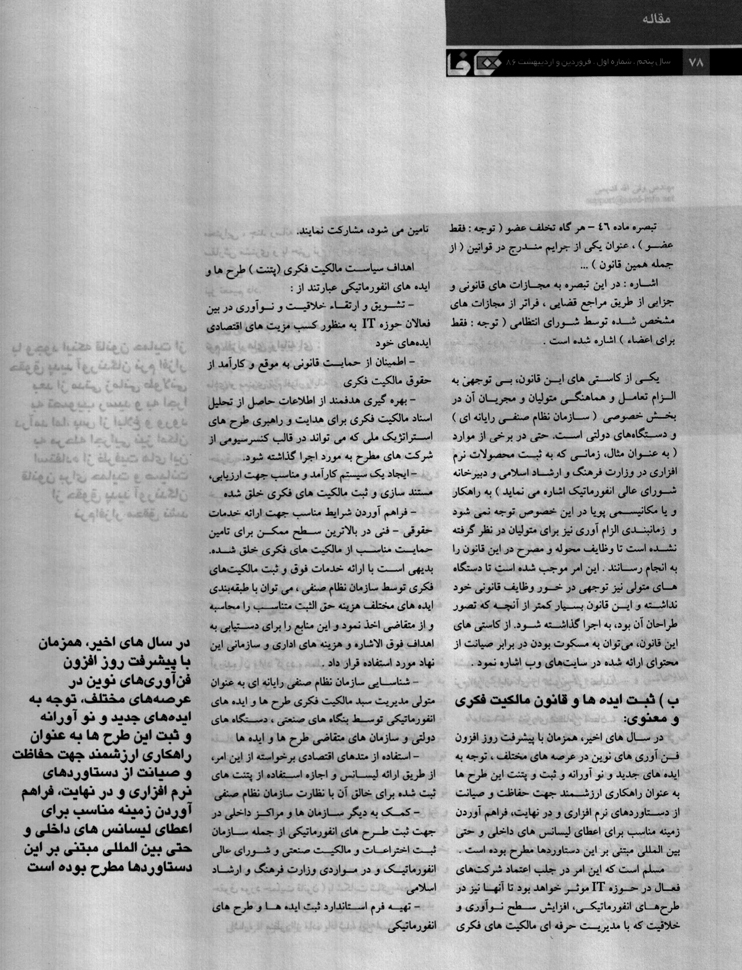 مقاله
۷۸
سال پنجم . شماره اول . فروردین و اردیبهشت ۸۶
تکفا
تبصره ماده ٤٦ – هر گاه تخلف عضو ( توجه : فقط
عضو ) ، عنوان یکی از جرایم مندرج در قوانین ( از
جمله همین قانون ) ...
اشاره : در این تبصره به مجازات های قانونی و
جزایی از طریق مراجع قضایی ، فراتر از مجازات های
مشخص شده توسط شورای انتظامی ( توجه : فقط
برای اعضاء ) اشاره شده است .
یکی از کاستی های این قانون، بی توجهی به
الزام تعامل و هماهنگی متولیان و مجریان آن در
بخش خصوصی ( سازمان نظام صنفی رایانه ای )
و دستگاه‌های دولتی است. حتی در برخی از موارد
( به عنوان مثال، زمانی که به ثبت محصولات نرم
افزاری در وزارت فرهنگ و ارشاد اسلامی و دبیرخانه
شورای عالی انفورماتیک اشاره می نماید ) به راهکار
و یا مکانیسمی پویا در این خصوص توجه نمی شود
و زمانبندی الزام آوری نیز برای متولیان در نظر گرفته
نشده است تا وظایف محوله و مصرح در این قانون را
به انجام رسانند . این امر موجب شده است تا دستگاه
های متولی نیز توجهی در خور وظایف قانونی خود
نداشته و این قانون بسیار کمتر از آنچه که تصور
طراحان آن بود، به اجرا گذاشته شود. از کاستی های
این قانون، می‌توان به مسکوت بودن در برابر صیانت از
محتوای ارائه شده در سایت‌های وب اشاره نمود .
ب ) ثبت ایده ها و قانون مالکیت فکری
و معنوی:
در سال های اخیر، همزمان با پیشرفت روز افزون
فن آوری های نوین در عرصه های مختلف ، توجه به
ایده های جدید و نو آورانه و ثبت و پتنت این طرح ها
به عنوان راهکاری ارزشمند جهت حفاظت و صیانت
از دستاوردهای نرم افزاری و در نهایت، فراهم آوردن
زمینه مناسب برای اعطای لیسانس های داخلی و حتی
بین المللی مبتنی بر این دستاوردها مطرح بوده است .
مسلم است که این امر در جلب اعتماد شرکت‌های
فعال در حوزه IT موثر خواهد بود تا آنها نیز در
طرح‌های انفورماتیکی، افزایش سطح نوآوری و
خلاقیت که با مدیریت حرفه ای مالکیت های فکری
تامین می شود، مشارکت نمایند.
اهداف سیاست مالکیت فکری (پتنت ) طرح ها و
ایده های انفورماتیکی عبارتند از :
– تشویق و ارتقاء خلاقیت و نوآوری در بین
فعالان حوزه IT به منظور کسب مزیت های اقتصادی
ایده‌های خود
– اطمینان از حمایت قانونی به موقع و کارآمد از
حقوق مالکیت فکری
– بهره گیری هدفمند از اطلاعات حاصل از تحلیل
اسناد مالکیت فکری برای هدایت و راهبری طرح های
استراتژیک ملی که می تواند در قالب کنسرسیومی از
شرکت های مطرح به مورد اجرا گذاشته شود.
– ایجاد یک سیستم کارآمد و مناسب جهت ارزیابی،
مستند سازی و ثبت مالکیت های فکری خلق شده
– فراهم آوردن شرایط مناسب جهت ارائه خدمات
حقوقی – فنی در بالاترین سطح ممکن برای تامین
حمایت مناسب از مالکیت های فکری خلق شده.
بدیهی است با ارائه خدمات فوق و ثبت مالکیت‌های
فکری توسط سازمان نظام صنفی ، می توان با طبقه‌بندی
ایده های مختلف هزینه حق الثبت متناسب را محاسبه
و از متقاضی اخذ نمود و این منابع را برای دستیابی به
اهداف فوق الاشاره و هزینه های اداری و سازمانی این
نهاد مورد استفاده قرار داد .
– شناسایی سازمان نظام صنفی رایانه ای به عنوان
متولی مدیریت سبد مالکیت فکری طرح ها و ایده های
انفورماتیکی توسط بنگاه های صنعتی ، دستگاه های
دولتی و سازمان های متقاضی طرح ها و ایده ها
– استفاده از متدهای اقتصادی برخواسته از این امر،
از طریق ارائه لیسانس و اجازه استفاده از پتنت های
ثبت شده برای خالق آن با نظارت سازمان نظام صنفی
– کمک به دیگر سازمان ها و مراکز داخلی در
جهت ثبت طرح های انفورماتیکی از جمله سازمان
ثبت اختراعات و مالکیت صنعتی و شورای عالی
انفورماتیک و در مواردی وزارت فرهنگ و ارشاد
اسلامی
– تهیه فرم استاندارد ثبت ایده ها و طرح های
انفورماتیکی
در سال های اخیر، همزمان
با پیشرفت روز افزون
فن‌آوری‌های نوین در
عرصه‌های مختلف، توجه به
ایده‌های جدید و نو آورانه
و ثبت این طرح ها به عنوان
راهکاری ارزشمند جهت حفاظت
و صیانت از دستاوردهای
نرم افزاری و در نهایت، فراهم
آوردن زمینه مناسب برای
اعطای لیسانس های داخلی و
حتی بین المللی مبتنی بر این
دستاوردها مطرح بوده است